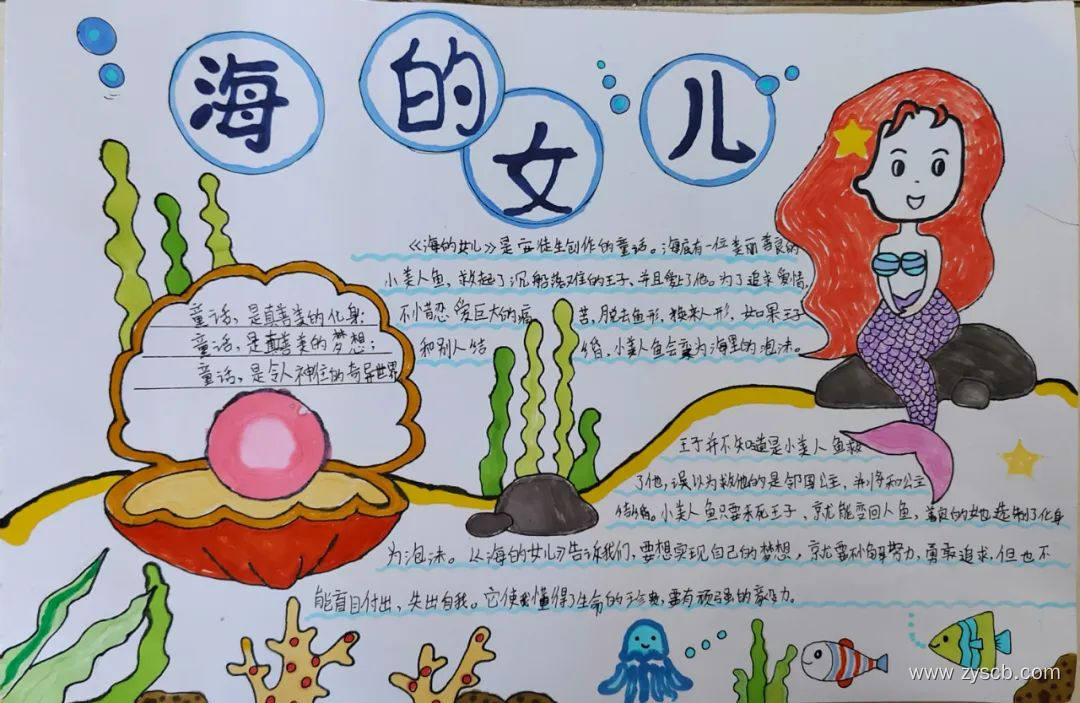 海的女儿
《海的女儿》是安徒生创作的童话。海底有一位美丽善良的
小美人鱼，救起了沉船落难的王子、并且爱上了他。为了追求爱情，
不惜忍受巨大的痛苦，脱去鱼形，换来人形，如果王子
和别人结婚，小美人鱼会变为海里的泡沫。
童话，是真善美的化身；
童话，是真善美的梦想；
童话，是令人神往的奇异世界
王子并不知道是小美人鱼救
了他，误以为救他的是邻国公主，并将和公主
结婚。小美人鱼只要杀死王子、就能变回人鱼，善良的她选择了化身
为泡沫。《海的女儿》告诉我们，要想实现自己的梦想，就要不懈努力，勇敢追求，但也不
能盲目付出，失去自我。它使我懂得了生命的珍贵，要有顽强的毅力。
www.zyscb.com